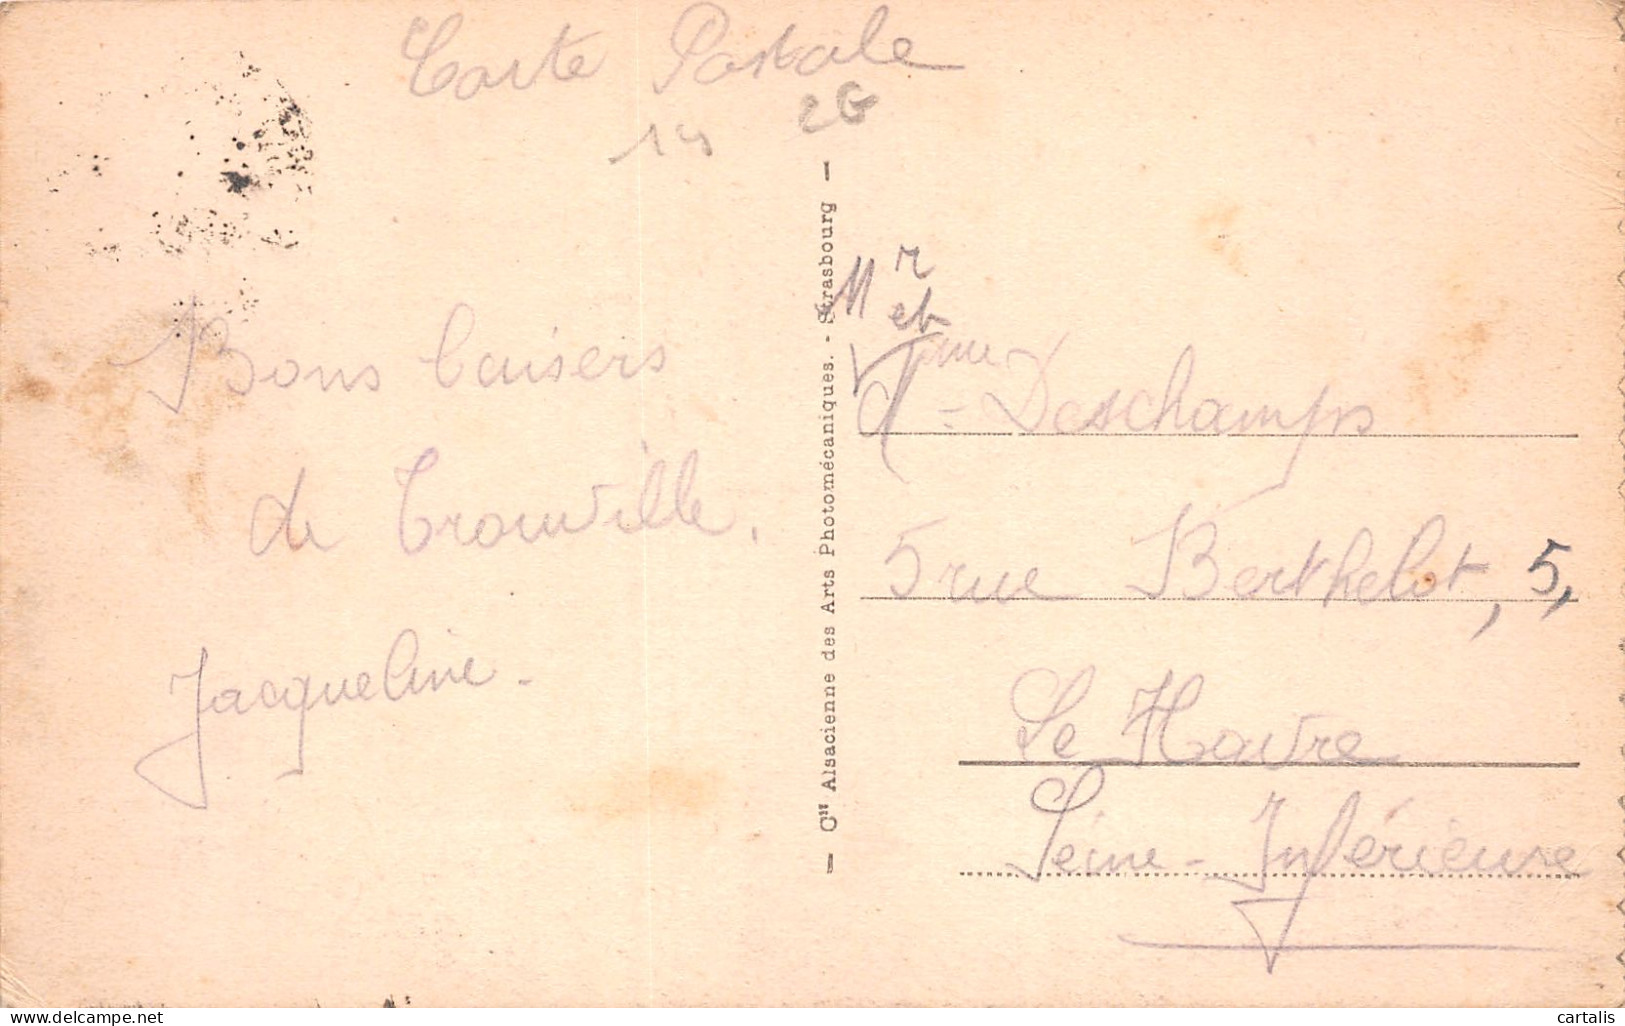 Carte Postale
14 26
Bons baisers
de Trouville.
Jacqueline.
— Cie Alsacienne des Arts Photomécaniques. - Strasbourg —
Mr et
Mme - Deschamps
5 rue Berthelot, 5,
Le Havre
Seine-Inférieure
delcampe.net
cartalis